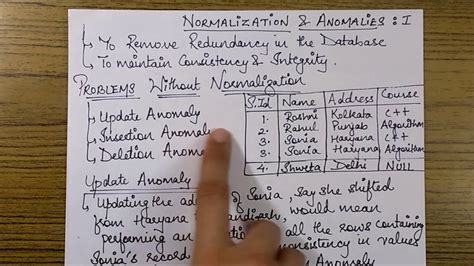 NORMALIZATION & ANOMALIES : I
→ To Remove Redundancy in the Database
→ To maintain Consistency & Integrity.
PROBLEMS WITHOUT NORMALIZATION
→ Update Anomaly
→ Insertion Anomaly
→ Deletion Anom
S.Id Name Address Course
1. Roshni Kolkata C++
2. Rahul Punjab Algorithm
3. Sonia Haryana C++
3. Sonia Haryana Algorithm
4. Shweta Delhi NULL
Update Anomaly
→ Updating the ad of Sonia, say she shifted
from Haryana would mean
performing an all the rows containing
Sonia's record consistency in values
Anomaly